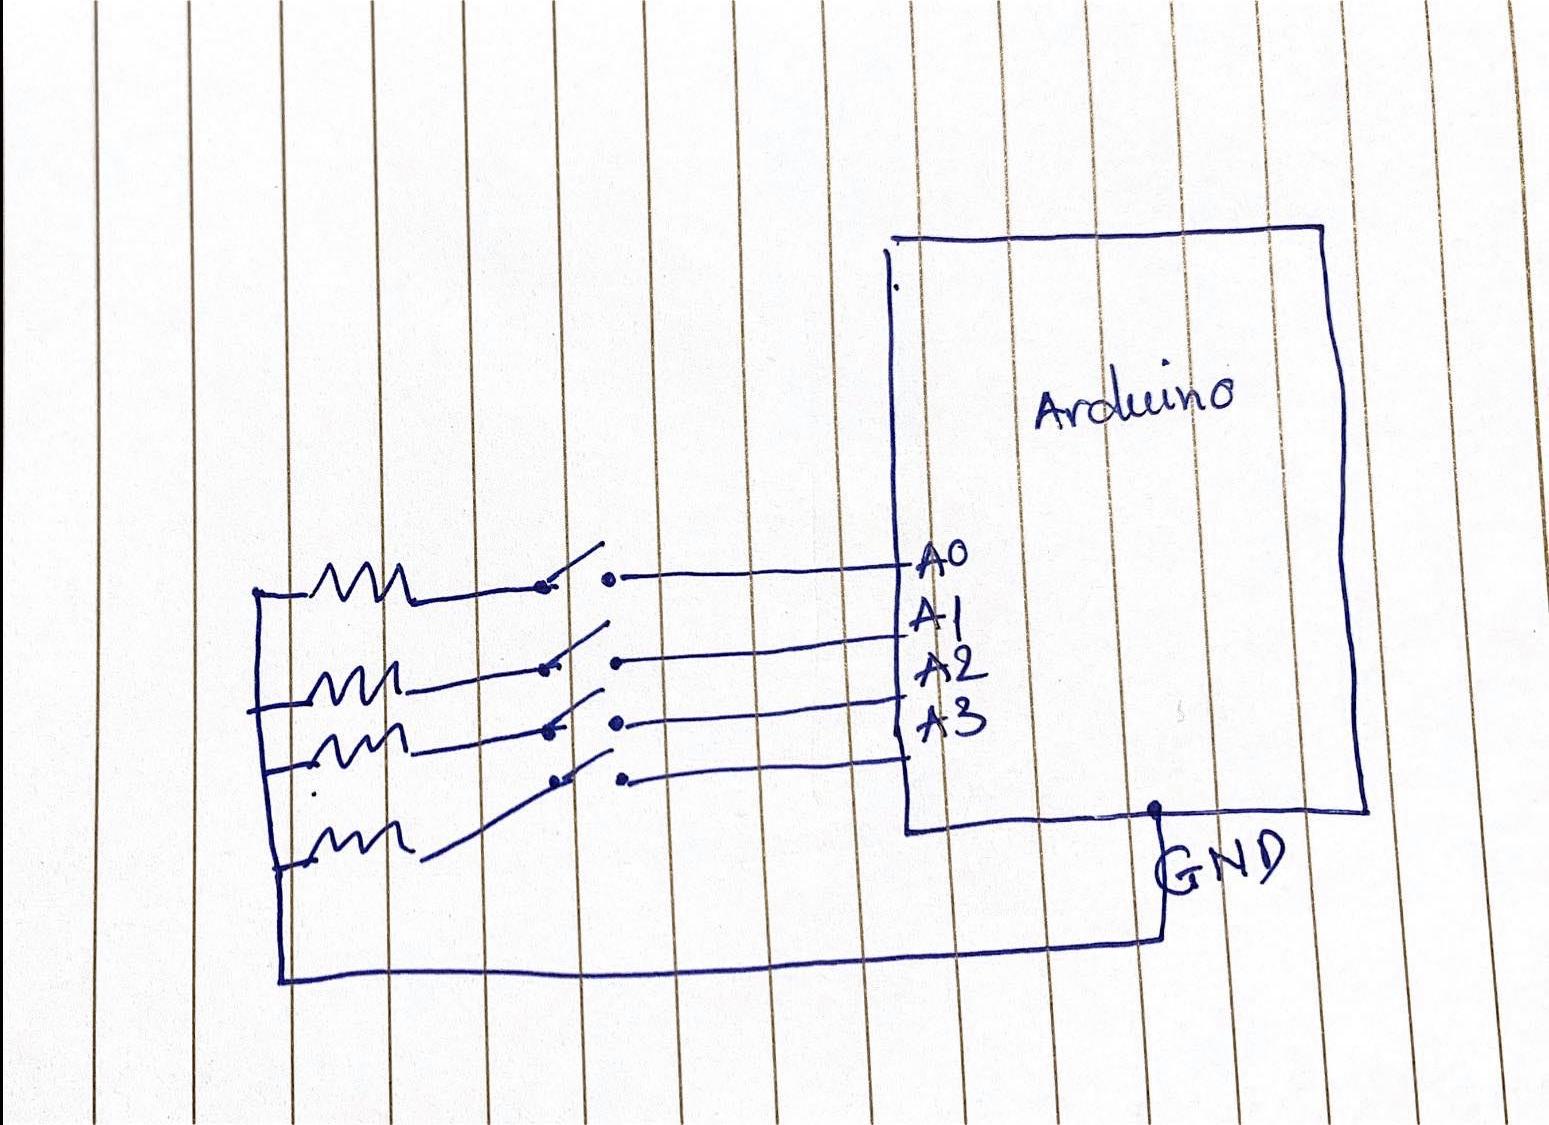 Arduino
A0
A1
A2
A3
GND